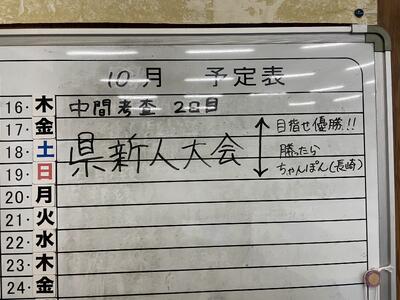 10月 予定表
16・木 中間考査 2日目
17・金 目指せ優勝!!
18・土 県新人大会 勝ったら
19・日 ちゃんぽん(長崎)
20・月
21・火
22・水
23・木
24・金